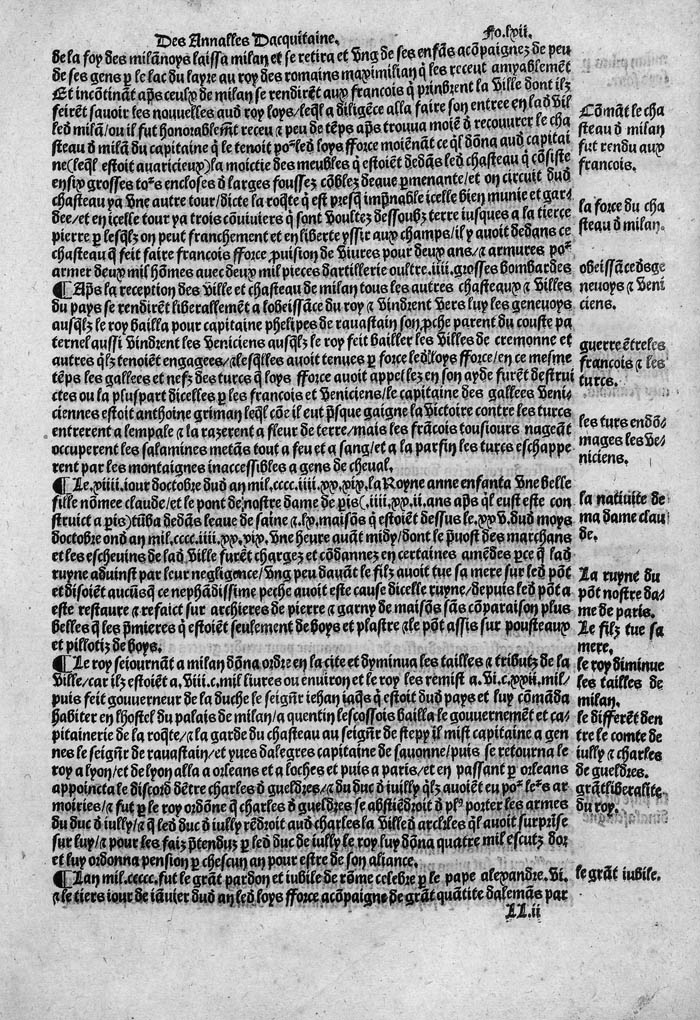 Des Annalles Dacquitaine. Fo.lxii.
de la foy des milãnoys laissa milan et se retira et vng de ses enfãs acõpaignez de peu
de ses gens p le lac du layre au roy des romains maximilian q̃ les receut amyablemẽt
Et incõtinãt ap̃s ceulx de milan se rendirẽt aux francois q̃ prindrent la ville dont ilz
feirẽt savoir les nouvelles aud roy loys/leq̃l a diligẽce alla faire son entree en lad vil
led milã/ou il fut honorablem̃t receu ⁊ peu de tẽps ap̃s trouva moiẽ d̃ recouvrer le cha
steau d̃ milã du capitaine q̃ le tenoit po²led loys sforce moiẽnãt ce q̃l dõna aud capitai
ne(leq̃l estoit avaricieux)la moictie des meubles q̃ estoiẽt dedãs led chasteau q̃ cõsiste
en six grosses to²s encloses d̃ larges foussez cõblez deaue p̱menante/et on circuit dud
chasteau ya vne autre tour/dicte la roq̃te q̃ est p̃sq̃ imp̃nable icelle bien munie et gar/
dee/et en icelle tour ya trois cõuiuiers q̃ sont voultez dessoubz terre iusques a la tierce
pierre p lesq̃lz on peut franchement et en liberte yssir aux champs/il y avoit dedans ce
chasteau q̃ feit faire francois sforce p̱uision de viures pour deux ans/⁊ armures po²
armer deux mil hõmes avec deux mil pieces dartillerie oultre.iiii.grosses bombardes
¶Ap̃s la reception des ville et chasteau de milan tous les autres chasteaux ⁊ villes
du pays se rendirẽt liberallement a lobeissãce du roy ⁊ vindrent vers luy les genevoys
ausq̃lz le roy bailla pour capitaine phelipes de ravastain son p̱che parent du couste pa
ternel aussi vindrent les veniciens ausq̃lz le roy feit bailler les villes de cremonne et
autres q̃lz tenoiẽt engagees/⁊lesq̃lles avoit tenues p force led loys sforce/en ce mesme
tẽps les gallees et nefz des turcs q̃ loys sforce avoit appellez en son ayde furẽt destrui
ctes ou la pluspart dicelles p les francois et veniciens/le capitaine des gallees veni/
ciennes estoit anthoine griman leq̃l cõe il eut p̃sque gaigne la victoire contre les turcs
entrerent a lempale ⁊ la razerent a fleur de terre/mais les frãcois tousiours nageãt
occuperent les salamines metãs tout a feu et a sang/et a la parfin les turcs eschappe
rent par les montaignes inaccessibles a gens de cheval.
¶Le xiiii.iour doctobre dud an mil.cccc.iiii.xx.xix.la Royne anne enfanta vne belle
fille nõmee claude/et le pont de nostre dame de pis(.iiii.xx.ii.ans ap̃s q̃l eust este con
struict a pis)tũba dedãs leaue de saine ⁊.lx.maisõs q̃ estoiẽt dessus le.xxv.dud moys
doctobre ond an mil.cccc.iiii.xx.xix.vne heure auãt midy/dont le p̃vost des marchans
et les eschevins de lad ville furẽt chargez et cõdãnez en certaines amẽdes pce q̃ lad
ruyne aduinst par leur negligence/vng peu dauãt le filz auoit tue sa mere sur led põt
et disoiẽt aucũs q̃ ce nephãdissime peche avoit este cause dicelle ruyne/depuis led põt a
este restaure ⁊ refaict sur archieres de pierre ⁊ garny de maisõs sãs cõparaison plus
belles q̃ les p̃mieres q̃ estoiẽt seulement de boys et plastre ⁊le põt assis sur pousteaux
et pillotiz de boys.
¶Le roy seiournãt a milan dõna ordre en la cite et dyminua les tailles ⁊ tributz de la
ville/car ilz estoiẽt a.viii.c.mil livres ou environ et le roy les remist a.vi.c.xxii.mil/
puis feit gouverneur de la duche le seign̄r iehan iaq̃s q̃ estoit dud pays et luy cõmãda
habiter en lhostel du palais de milan/a quentin lescossois bailla le gouvernemẽt et ca/
pitainerie de la roq̃te/⁊ la garde du chasteau au seign̄r de stepy il mist capitaine a gen
nes le seign̄r de ravastain/et yues dalegres capitaine de savonne/puis se retourna le
roy a lyon/et de lyon alla a orleans et a loches et puis a paris/et en passant p orleans
appoincta le discord dẽtre charles d̃ gueldres/⁊ du duc d̃ iuilly q̃lz avoiẽt eu po² le²s ar
moiries/⁊ fut p le roy ordõne q̃ charles d̃ gueldres se abstiẽdroit d̃ plꝰ porter les armes
du duc d̃ iully/⁊ q̃ led duc d̃ iully rẽdroit aud charles la ville d̃ arcles q̃l avoit surp̃nse
sur luy/⁊ pour les faiz p̃tenduz p led duc de iully le roy luy dõna quatre mil escutz dor
et luy ordonna pension p chescun an pour estre de son aliance.
¶Lan mil.ccccc.fut le grãt pardon et iubile de rõme celebre p le pape alexandre.vi.
⁊ le tiers iour de iãvier dud an led loys sforce acõpaigne de grãt quãtite dalemãs par
LL.ii
Cõmãt le cha
steau d̃ milan
fut rendu aux
francois.
la force du cha
steau d̃ milan.
obeissãce ds ge
nevoys ⁊ veni
ciens.
guerre ẽtre les
francois ⁊ les
turcs.
les turs endõ/
mages les ve/
niciens.
la nativite de
ma dame clau
de.
La ruyne du
põt nostre da/
me de paris.
Le filz tue sa
mere.
le roy diminue
les tailles de
milan.
le differẽt den
tre le comte de
iully ⁊ charles
de gueldres.
grãt liberalite
du roy.
le grãt iubile.